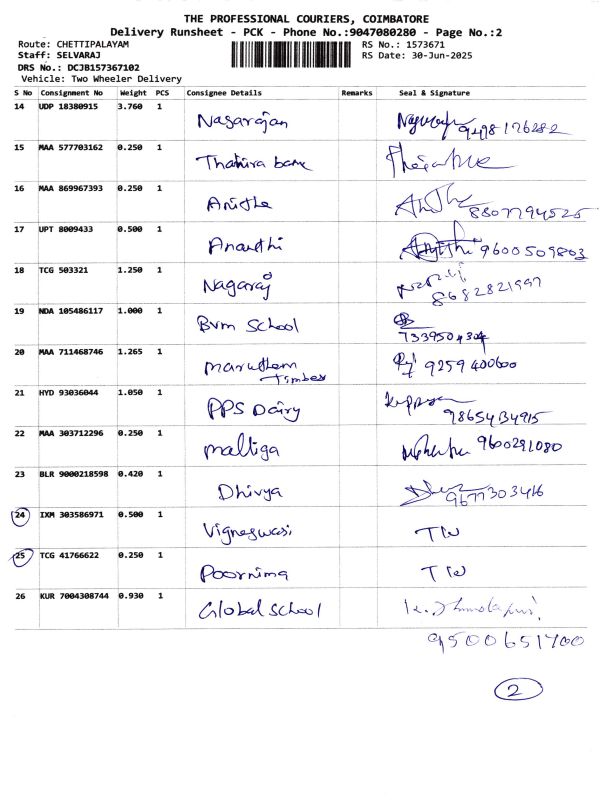 THE PROFESSIONAL COURIERS, COIMBATORE
Delivery Runsheet - PCK - Phone No.:9047080280 - Page No.:2
Route: CHETTIPALAYAM RS No.: 1573671
Staff: SELVARAJ RS Date: 30-Jun-2025
DRS No.: DCJB157367102
Vehicle: Two Wheeler Delivery
S No Consignment No Weight PCS Consignee Details Remarks Seal & Signature
14 UDP 18380915 3.760 1 Nagarajan 9498176282
15 MAA 577703162 0.250 1 Thahira banu
16 MAA 869967393 0.250 1 Anitha 8807794525
17 UPT 8009433 0.500 1 Ananthi 9600509803
18 TCG 503321 1.250 1 Nagaraj 8682821997
19 NDA 105486117 1.000 1 Bvm School
7339504304
20 MAA 711468746 1.265 1 Maruthem 9259400600
Timber
21 HYD 93036044 1.050 1 PPS Dairy
22 MAA 303712296 0.250 1 Malliga 9600291080
23 BLR 9000218598 0.420 1 Dhivya 9677303416
24 IXM 303586971 0.500 1 Vigneswari
25 TCG 41766622 0.250 1 Poornima
26 KUR 7004308744 0.930 1 Global School
9500651700
2